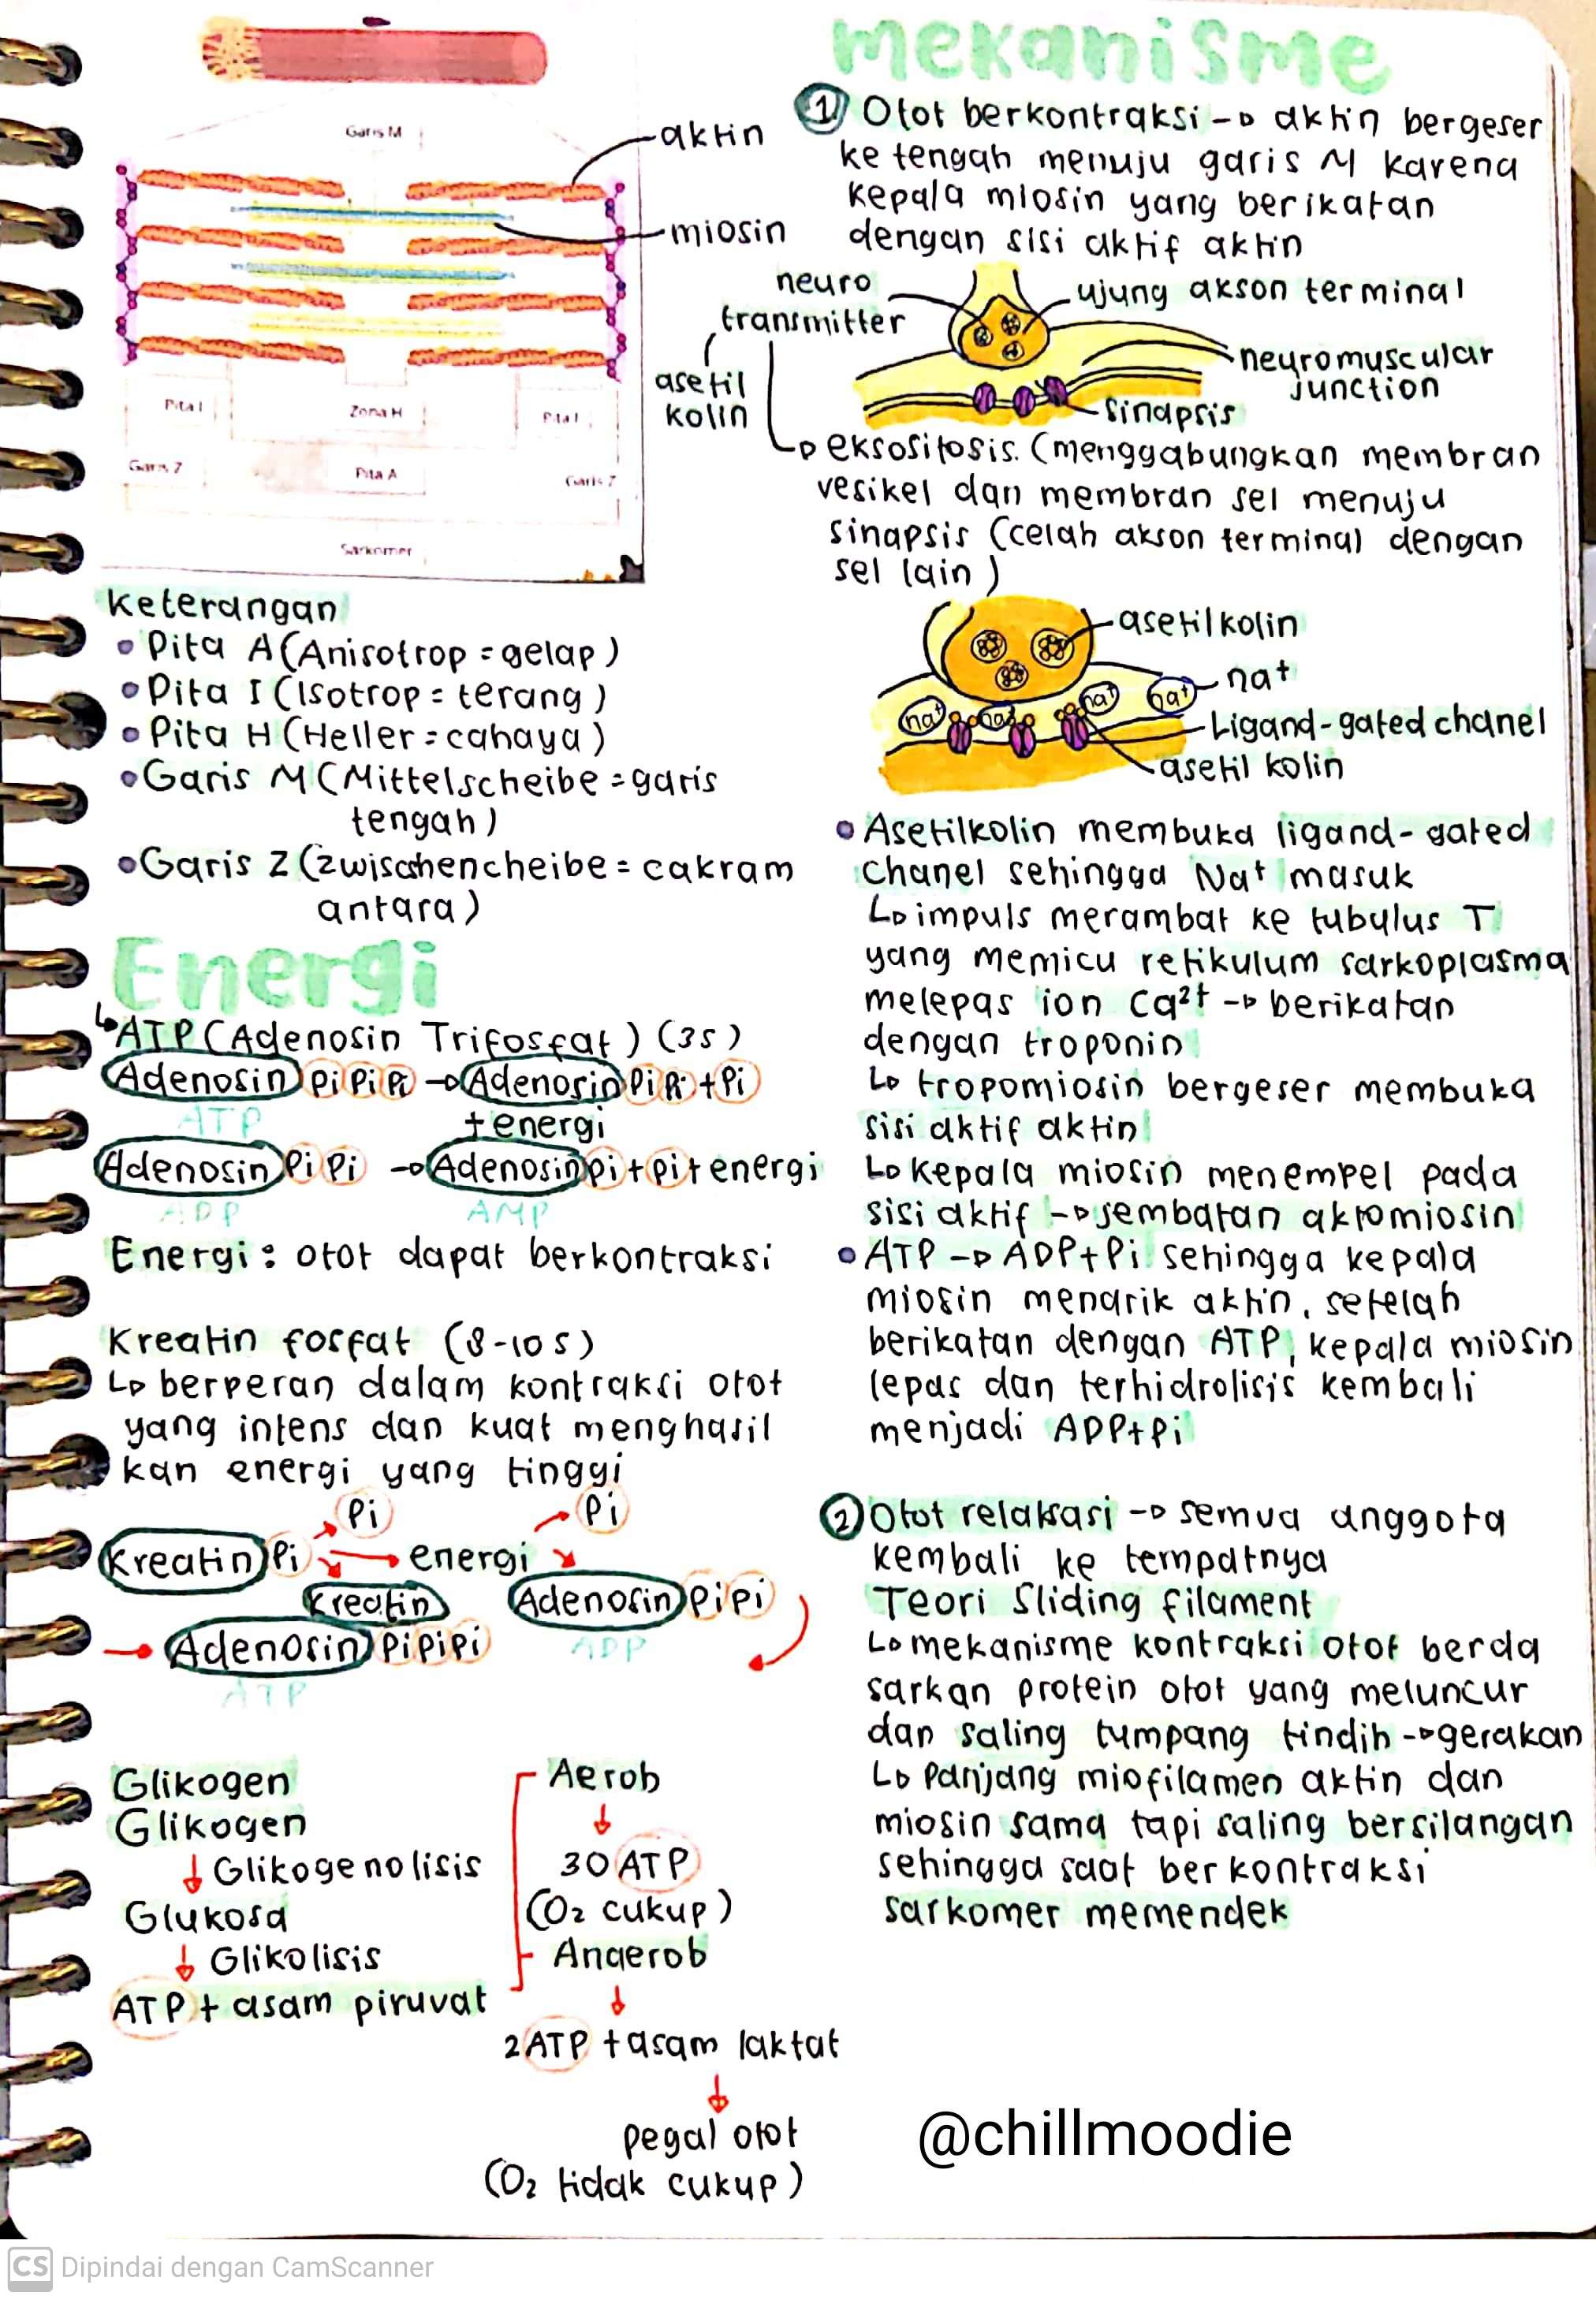 Garis M
aktin
miosin
Pita I
Zona H
Pita I
Garis Z
Pita A
Garis Z
Sarkomer
keterangan
• Pita A (Anisotrop = gelap)
• Pita I (Isotrop = terang)
• Pita H (Heller = cahaya)
• Garis M (Mittelscheibe = garis
tengah)
• Garis Z (zwischencheibe = cakram
antara)
Energi
↳ ATP (Adenosin Trifosfat) (3s)
Adenosin Pi Pi Pi → Adenosin Pi Pi + Pi
ATP
+ energi
Adenosin Pi Pi → Adenosin Pi + Pi + energi
ADP AMP
Energi : otot dapat berkontraksi
Kreatin fosfat (8-10 s)
↳ berperan dalam kontraksi otot
yang intens dan kuat menghasil
kan energi yang tinggi
Pi Pi
Kreatin Pi → energi
Kreatin Adenosin Pi Pi
ADP
→ Adenosin Pi Pi Pi
ATP
Glikogen
Glikogen
↓ Glikogenolisis
Glukosa
↓ Glikolisis
ATP + asam piruvat
Aerob
↓
30 ATP
(O₂ cukup)
Anaerob
↓
2 ATP + asam laktat
↓
pegal otot
(O₂ tidak cukup)
mekanisme
① Otot berkontraksi → aktin bergeser
ke tengah menuju garis M karena
kepala miosin yang berikatan
dengan sisi aktif aktin
neuro
transmitter
asetil
kolin
ujung akson terminal
neuromuscular
junction
sinapsis
↳ eksositosis. (menggabungkan membran
vesikel dan membran sel menuju
sinapsis (celah akson terminal dengan
sel lain)
asetilkolin
na⁺
na⁺ na⁺ na⁺ na⁺
Ligand-gated chanel
asetil kolin
• Asetilkolin membuka ligand-gated
chanel sehingga Na⁺ masuk
↳ impuls merambat ke tubulus T
yang memicu retikulum sarkoplasma
melepas ion Ca²⁺ → berikatan
dengan troponin
↳ tropomiosin bergeser membuka
sisi aktif aktin
↳ kepala miosin menempel pada
sisi aktif → jembatan aktomiosin
• ATP → ADP+Pi sehingga kepala
miosin menarik aktin, setelah
berikatan dengan ATP, kepala miosin
lepas dan terhidrolisis kembali
menjadi ADP+Pi
② Otot relaksasi → semua anggota
kembali ke tempatnya
Teori Sliding filament
↳ mekanisme kontraksi otot berda
sarkan protein otot yang meluncur
dan saling tumpang tindih → gerakan
↳ Panjang miofilamen aktin dan
miosin sama tapi saling bersilangan
sehingga saat berkontraksi
sarkomer memendek
@chillmoodie
CS Dipindai dengan CamScanner